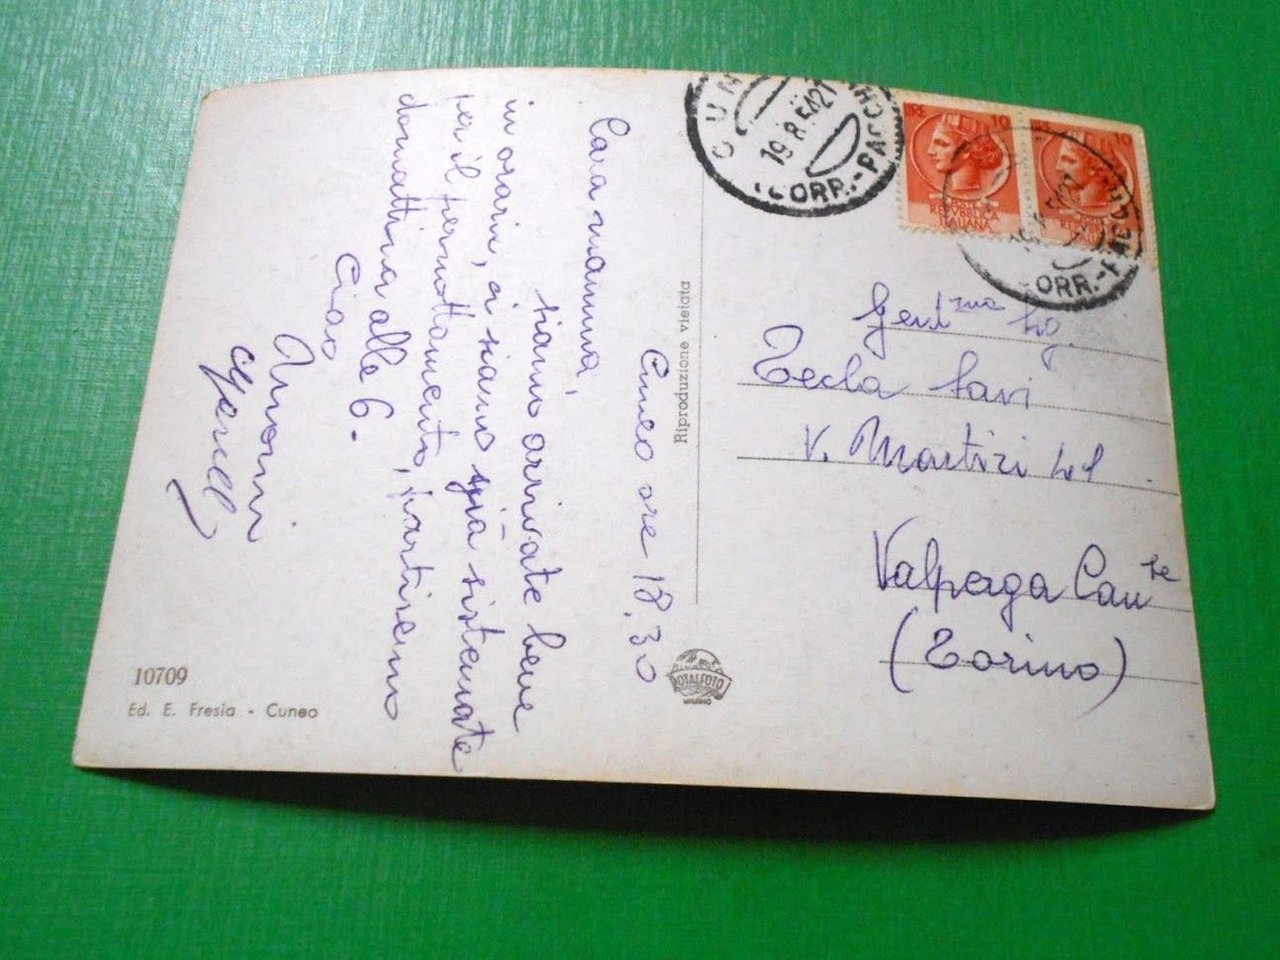 Cuneo ore 18.30
Cara mamma,
siamo arrivate bene
in orario, ci siamo già sistemate
per il pernottamento, partiremo
domattina alle 6.
Ciao
CUN
19.8.54.21
CORR.-PACCHI
LIRE 10
REPUBBLICA
ITALIANA
LIRE 10
ORR.-PACCHI
Gent.ma Sig.
Tecla Savi
V. Martiri
Valperga Can.se
(Torino)
Riproduzione vietata
ROTALFOTO
MILANO
10709
Ed. E. Fresia - Cuneo